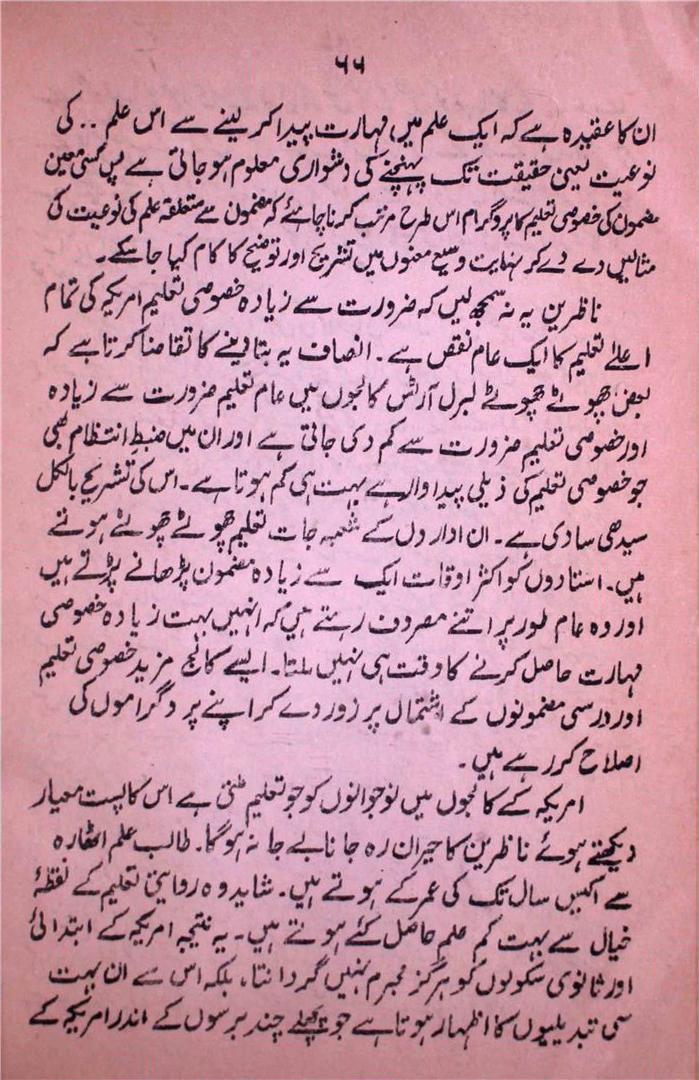 ۶۶
ان کا عقیدہ ہے کہ ایک علم میں مہارت پیدا کر لینے سے اس علم .. کی
نوعیت یعنی حقیقت تک پہنچنے کی دشواری معلوم ہو جاتی ہے پس کسی معین
مضمون کی خصوصی تعلیم کا پروگرام اس طرح مرتب کرنا چاہئے کہ مضمون سے متعلقہ علم کی نوعیت کی
مثالیں دے دے کر نہایت وسیع معنوں میں تشریح اور توضیح کا کام کیا جا سکے۔
ناظرین یہ نہ سمجھ لیں کہ ضرورت سے زیادہ خصوصی تعلیم امریکہ کی تمام
اعلےٰ تعلیم کا ایک عام نقص ہے۔ انصاف یہ بتا دینے کا تقاضا کرتا ہے کہ
بعض چھوٹے چھوٹے لبرل آرٹس کالجوں میں عام تعلیم ضرورت سے زیادہ
اور خصوصی تعلیم ضرورت سے کم دی جاتی ہے اور ان میں ضبطِ انتظام بھی
جو خصوصی تعلیم کی ذیلی پیداوار ہے بہت ہی کم ہوتا ہے۔ اس کی تشریح بالکل
سیدھی سادی ہے۔ ان اداروں کے شعبہ جات تعلیم چھوٹے چھوٹے ہوتے
ہیں۔ استادوں کو اکثر اوقات ایک سے زیادہ مضمون پڑھانے پڑتے ہیں
اور وہ عام طور پر اتنے مصروف رہتے ہیں کہ انہیں بہت زیادہ خصوصی
مہارت حاصل کرنے کا وقت ہی نہیں ملتا۔ ایسے کالج مزید خصوصی تعلیم
اور درسی مضمونوں کے اشتمال پر زور دے کر اپنے پروگراموں کی
اصلاح کر رہے ہیں۔
امریکہ کے کالجوں میں نوجوانوں کو جو تعلیم ملتی ہے اس کا پست معیار
دیکھتے ہوئے ناظرین کا حیران رہ جانا بے جا نہ ہوگا۔ طالب علم اٹھارہ
سے اکیس سال تک کی عمر کے ہوتے ہیں۔ شاید وہ روایتی تعلیم کے نقطۂ
خیال سے بہت کم علم حاصل کئے ہوتے ہیں۔ یہ نتیجہ امریکہ کے ابتدائی
اور ثانوی سکولوں کو ہرگز مجرم نہیں گردانتا، بلکہ اس سے ان بہت
سی تبدیلیوں کا اظہار ہوتا ہے جو پچھلے چند برسوں کے اندر امریکہ کے